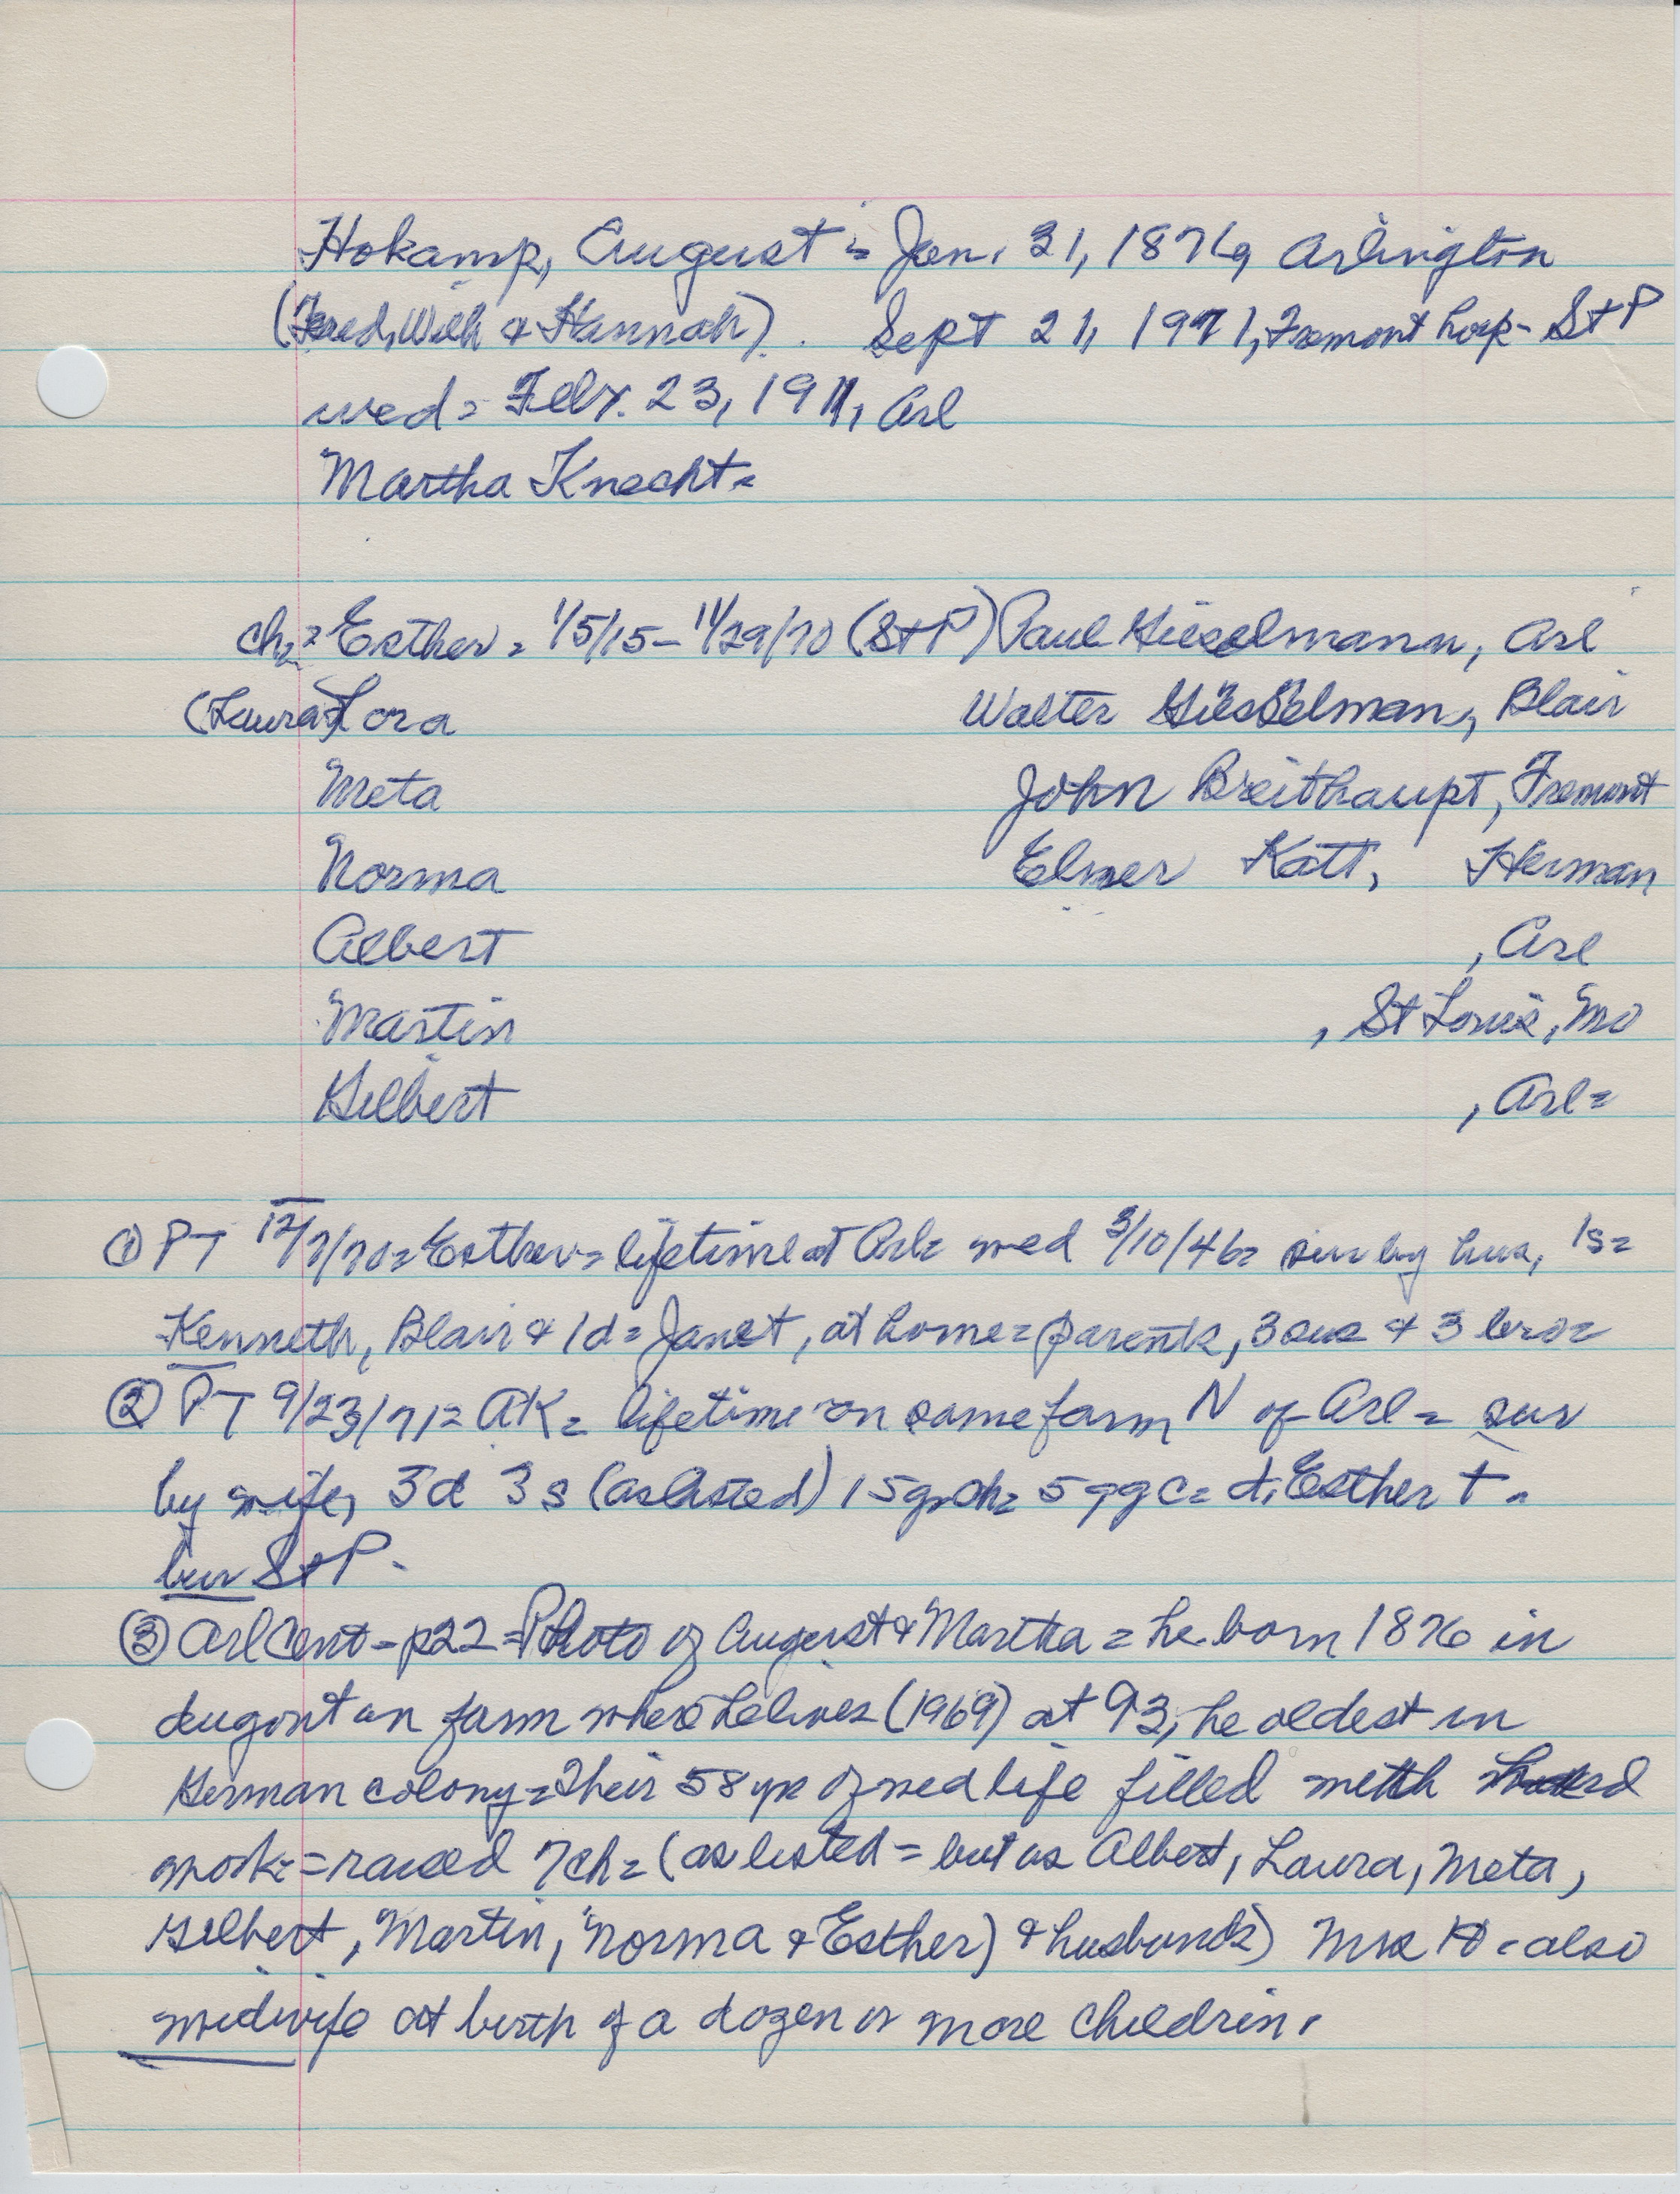 Hokamp, August = Jan. 31, 1876, Arlington
(Fred, Wilh & Hannah). Sept 21, 1971, Fremont hosp - St P
wed = Febr. 23, 1911, Arl
Martha Knecht =
ch = Esther = 1/5/15 - 11/29/70 (St P) Paul Gieselmann, Arl
(Laura) Lora Walter Giesselman, Blair
Meta John Breithaupt, Fremont
Norma Elmer Katt, Herman
Albert , Arl
Martin , St Louis, Mo
Gilbert , Arl =
① PT 12/7/70 = Esther = lifetime at Arl = wed 3/10/46 = sur by hus, 1s =
Kenneth, Blair & 1d = Janet, at home = parents, 3 sis & 3 bro =
② PT 9/23/71 = = lifetime on same farm N of Arl = sur
by wife, 3d 3s (as listed) 15 grch = 5 ggc = d, Esther † =
bur St P -
③ Arl Cent - p22 = Photo of August & Martha = he born 1876 in
dugout on farm where he lives (1969) at 93, he oldest in
German colony = Their 58 yrs of wed life filled with hard
work = raised 7 ch = (as listed = but as Albert, Laura, Meta,
Gilbert, Martin, Norma & Esther) & husbands) Mrs H = also
midwife at birth of a dozen or more children.